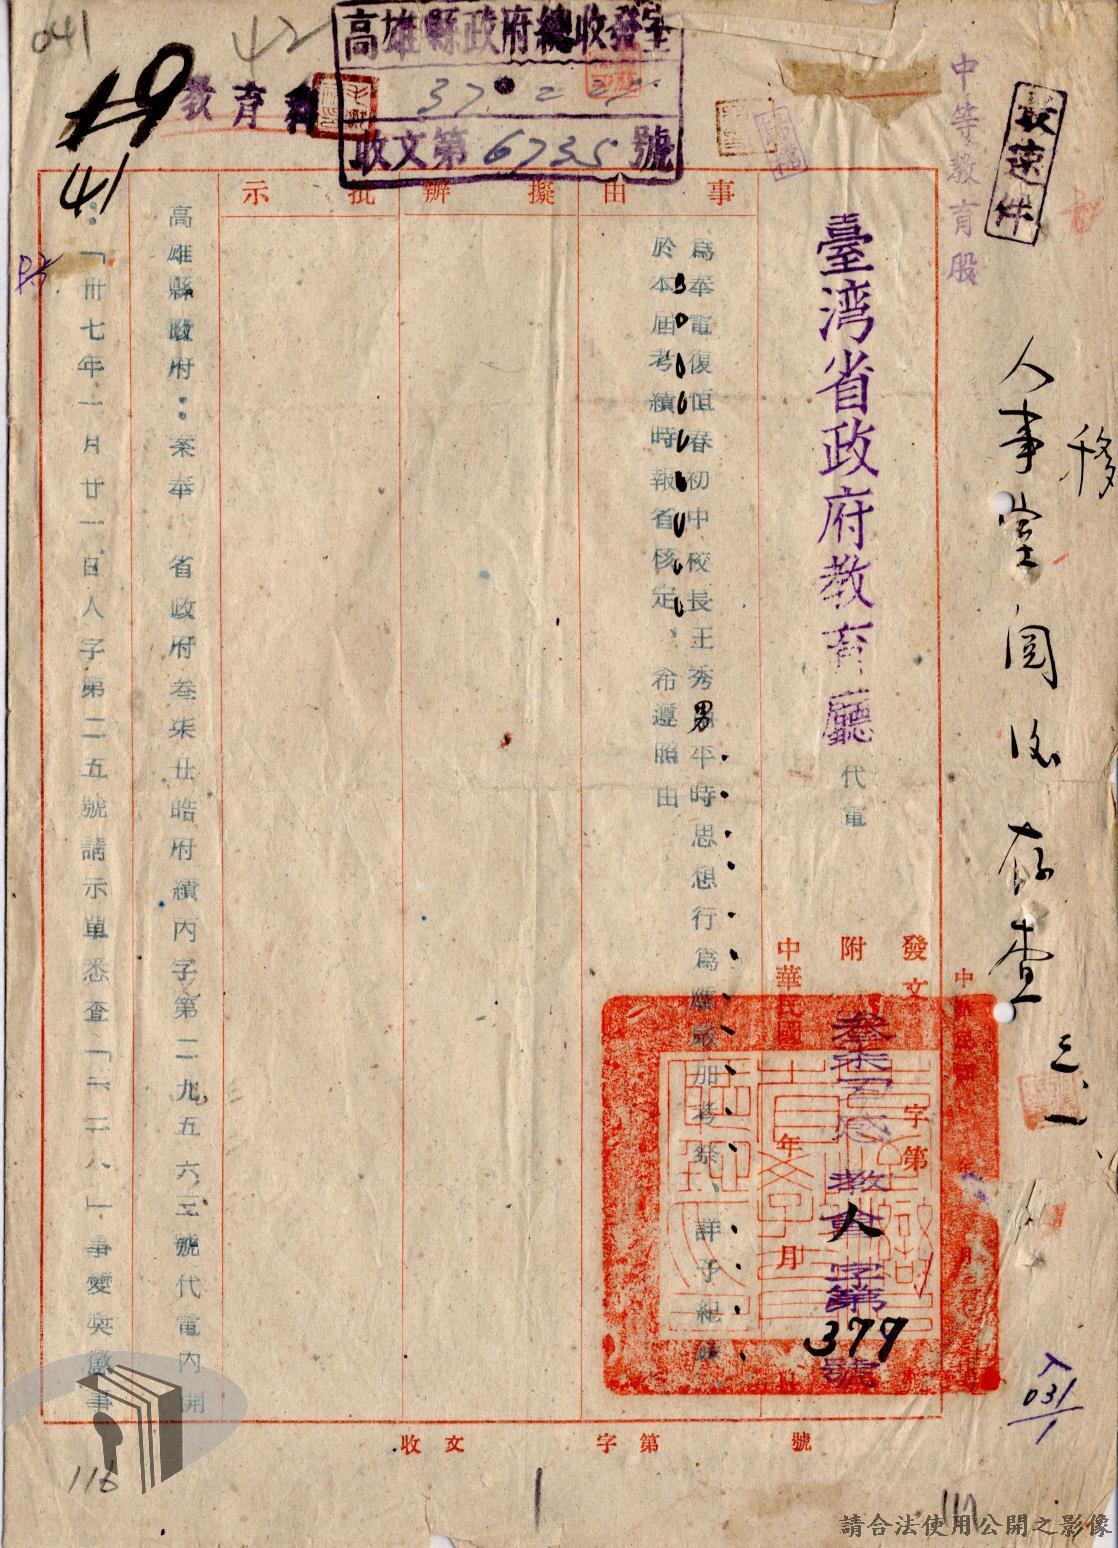 最速件
中等教育股
人事室閱後存查
移
三、一
041
42
19
41
教育科
高雄縣政府總收發室
37
收文第6735號
臺湾省政府教育廳
代電
發文
附
字第
中華民國
年
月
叁柒丑感
教人字第
379
號
事由
擬辦
批示
為奉電復恒春初中校長王秀男平時思想行為應嚴加考察、詳予紀錄
於本屆考績時報省核定、希遵照由
高雄縣政府：案奉 省政府叁柒丑皓府績丙字第二九五六三號代電內開
：「卅七年一月廿一日人字第二五號請示單悉查「二二八」事變獎懲事
收文
字第
號
031
1
116
117
請合法使用公開之影像